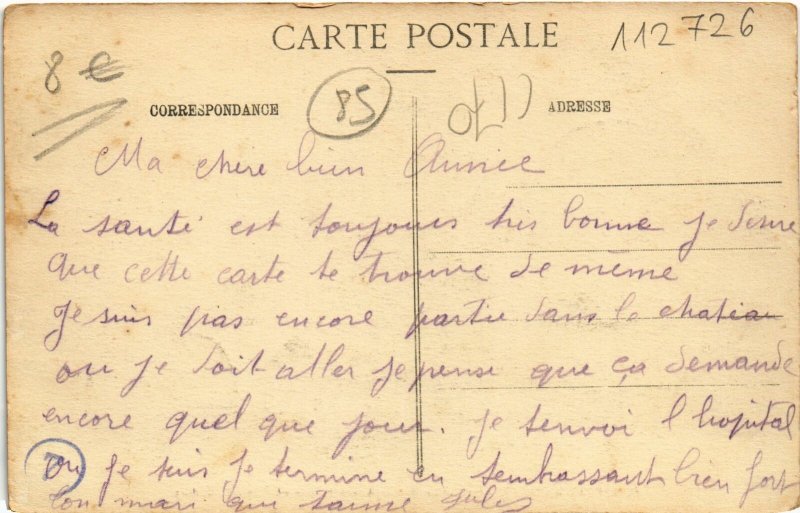 CARTE POSTALE
112726
8 €
85
CORRESPONDANCE
ADRESSE
Ma chere bien Aimee
La santé est toujours tris bonne je désire
que cette carte te trouve de même
Je suis pas encore partie dans le chateau
ou je doit aller je pense que ça demande
encore quel que jour. je tenvoi l hopital
ou je suis je termine en tembrassant bien fort
ton mari qui taime Jules